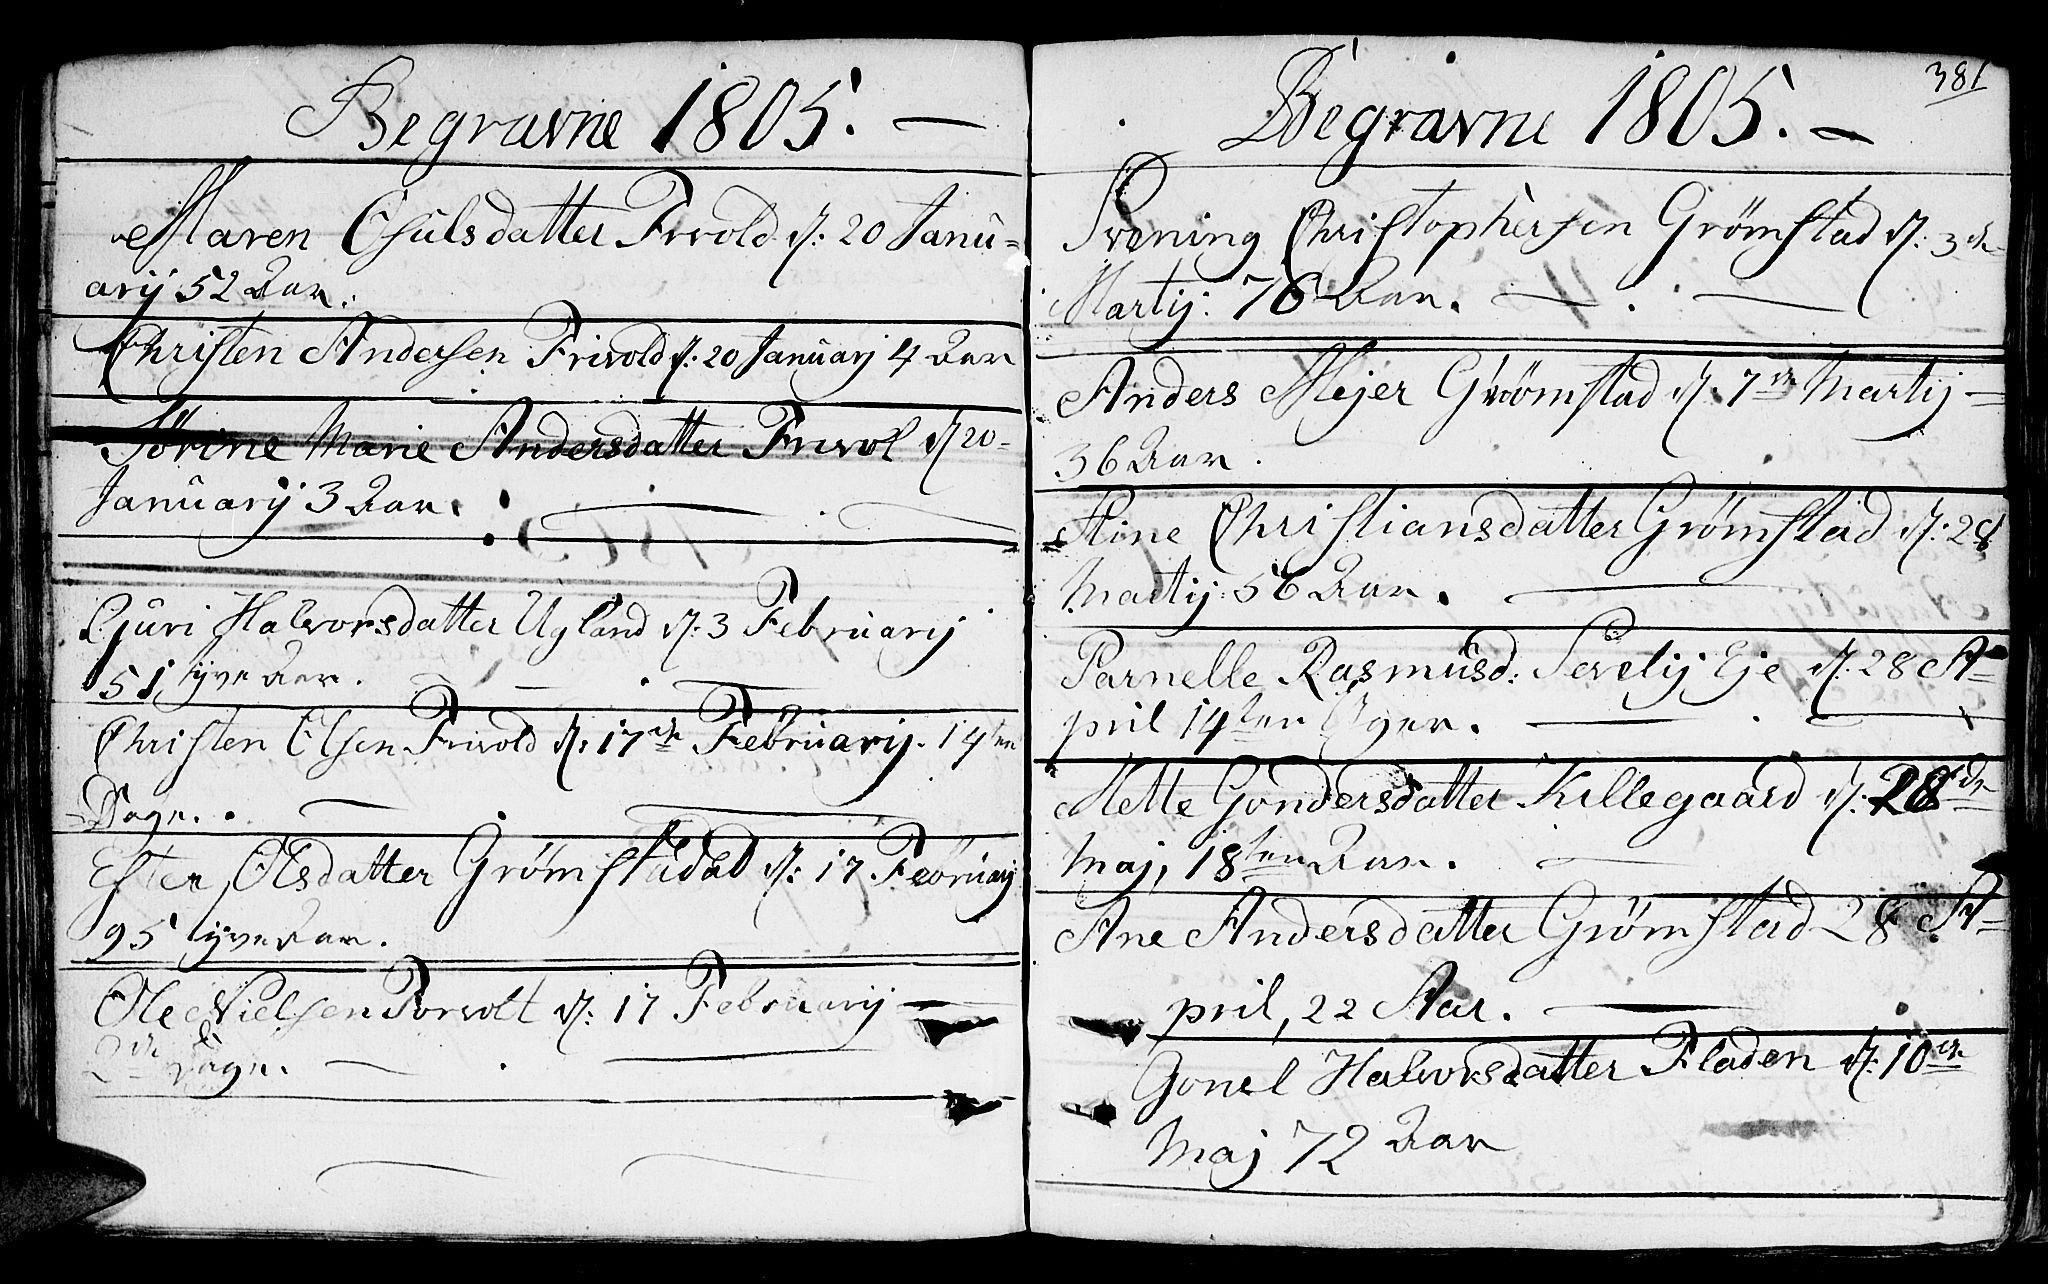 Begravne 1805. —
Maren Osulsdatter Frivold d: 20 Janu-
arij 52 Aar.
Christen Andersen Frivold d: 20 Januarij 4 Aar
Sørine Marie Andersdatter Frivol d 20-
Januarij 3 Aar.
Gjuri Halvorsdatter Ugland d: 3 Februarij
51 tyve Aar.
Christen Olsen Frivold d: 17de Februarij. 14ten
Dage.
Ester Olsdatter Grømstadad d: 17 Februarij
95 tyve Aar.
Ole Nielsen Porvolt d: 17 Februarij
2de Dage.
381
Begravne 1805. —
Svening Christophersen Grømstad d: 3de
Martij: 76 Aar.
Anders Mejer Grømstad d. 7de Martij
36 Aar.
Stine Christiansdatter Grømstad d: 28
Martij: 56 Aar.
Parnelle Rasmusd: Sevelij Eje d: 28 A-
pril 14ten Uger.
Mette Gondersdatter Killegaard d: 28de
Maj, 18ten Aar.
Ane Andersdatter Grømstad 28 A-
pril, 22 Aar.
Gonel Halvorsdatter Fladen d: 10de
Maj 72 Aar